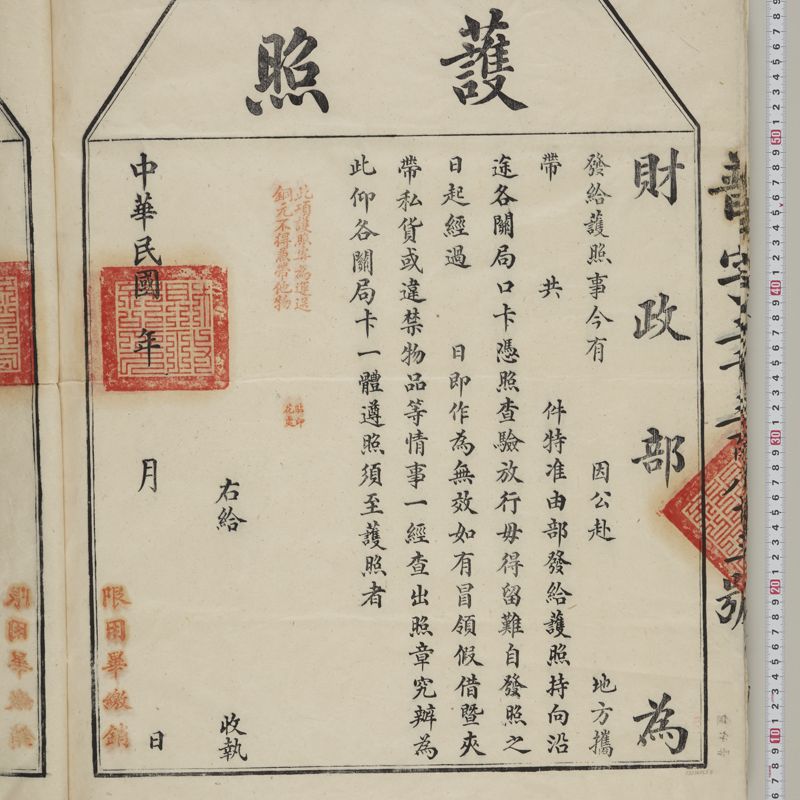 護照
財政部為
發給護照事今有 因公赴 地方攜
帶 共 件特准由部發給護照持向沿
途各關局口卡憑照查驗放行毋得留難自發照之
日起經過 日即作為無效如有冒領假借暨夾
帶私貨或違禁物品等情事一經查出照章究辦為
此仰各關局卡一體遵照須至護照者
此項護照專為運送
銅元不得夾帶他物
貼印
花處
右給 收執
中華民國 年 月 日
限用畢繳銷